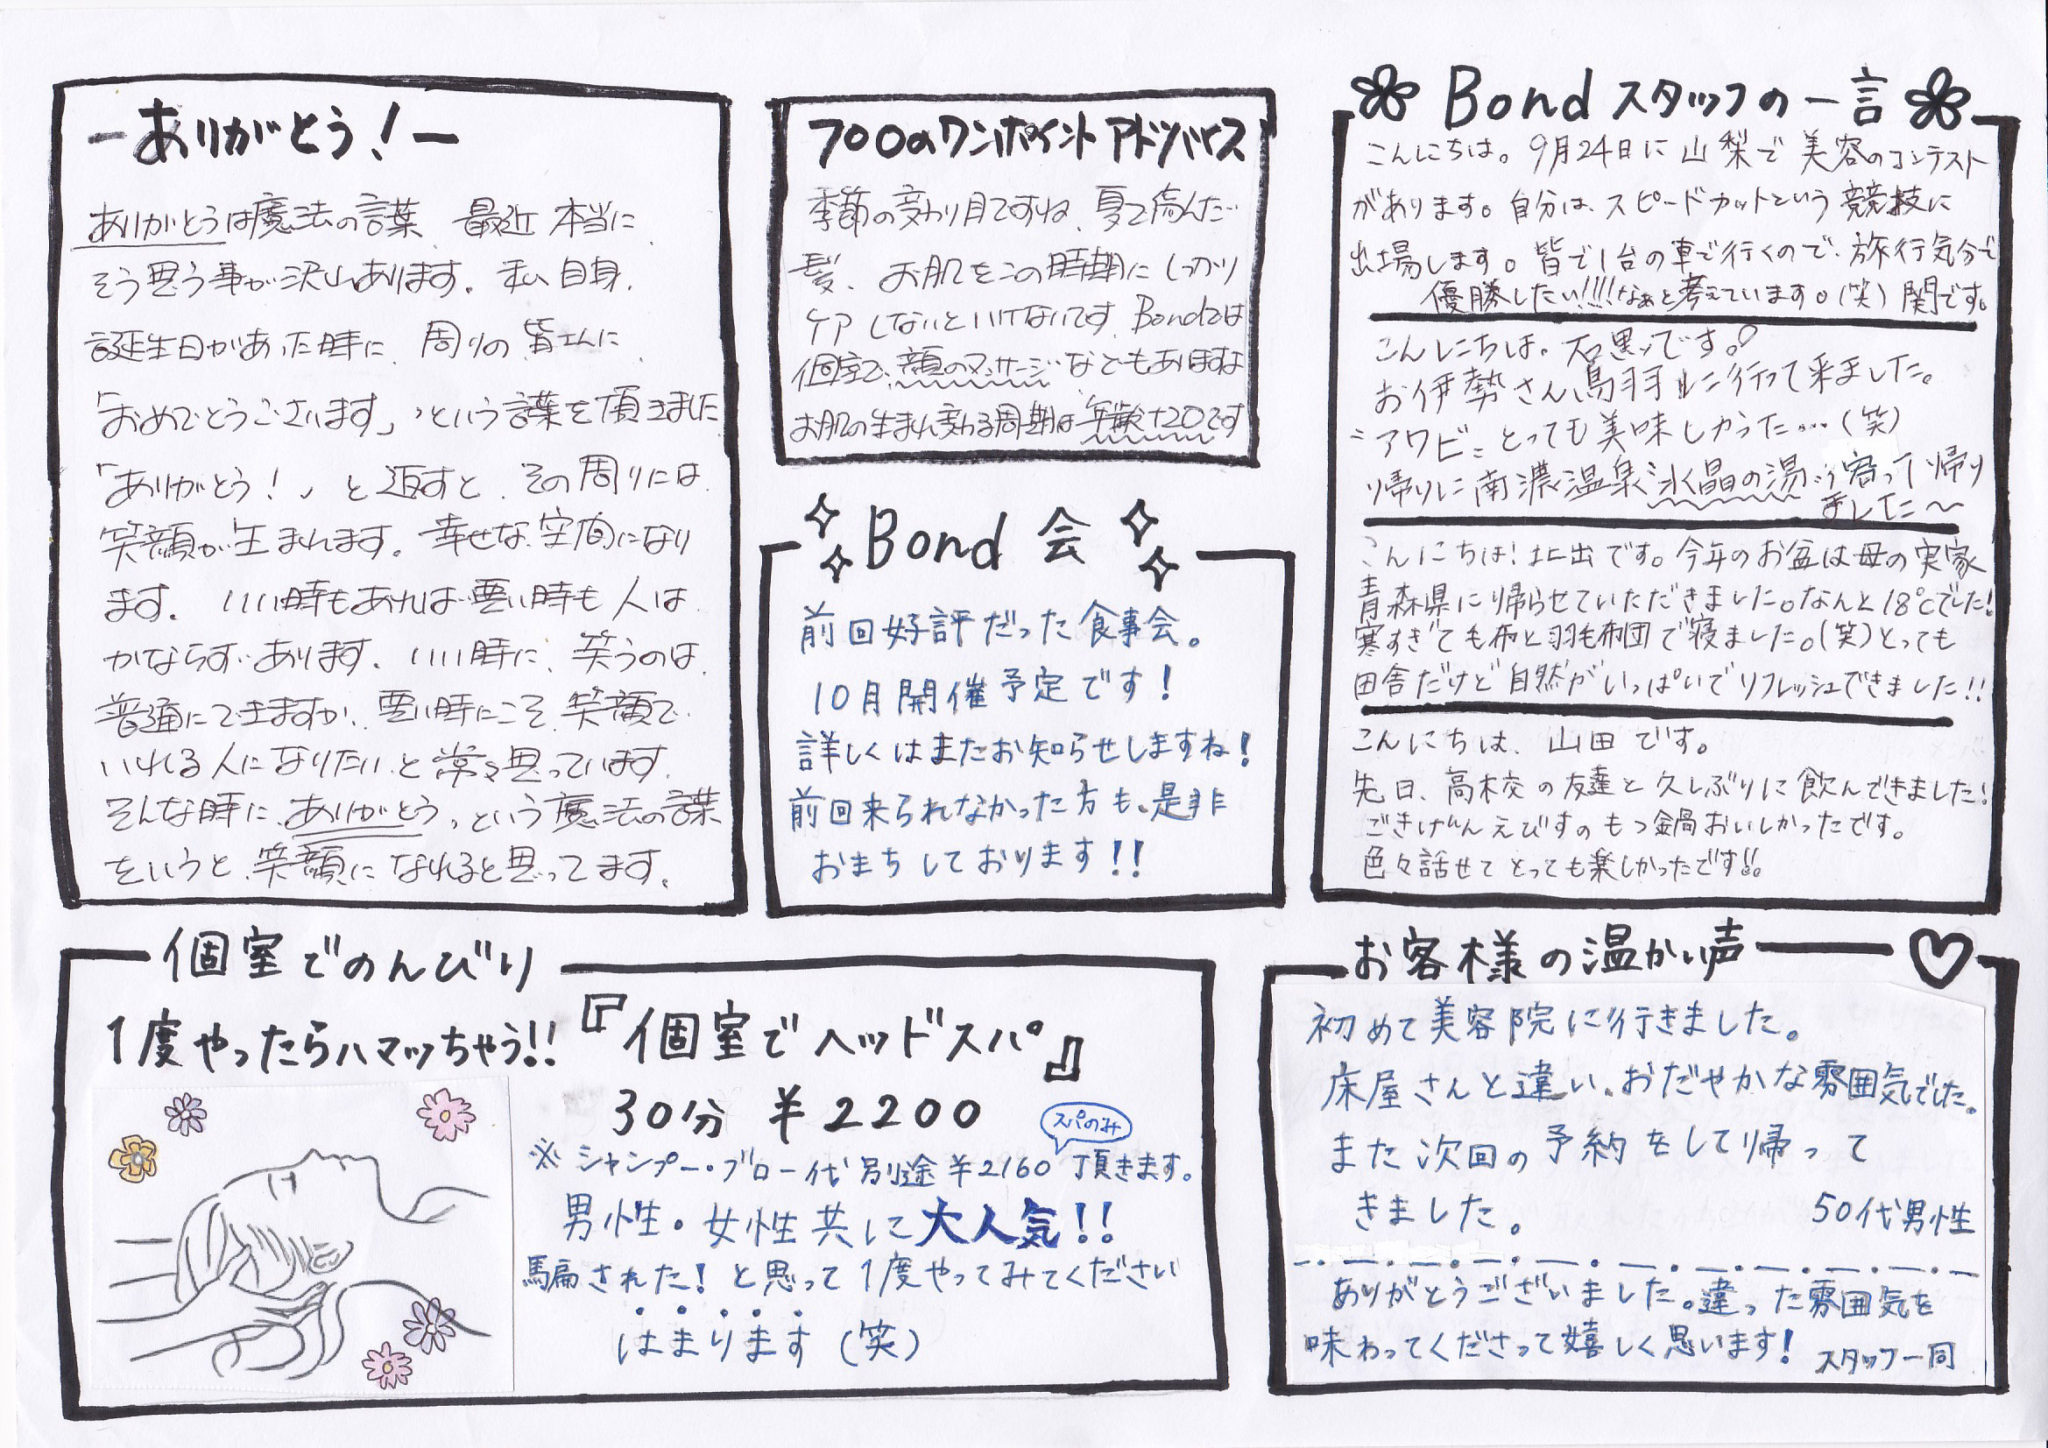 ーありがとう！ー
ありがとうは魔法の言葉、最近本当に
そう思う事が沢山あります。私自身、
誕生日があった時に、周りの皆さんに
「おめでとうございます」という言葉を頂きました
「ありがとう！」と返すと、その周りには
笑顔が生まれます。幸せな空間になり
ます。いい時もあれば悪い時も人は
かならずあります、いい時に、笑うのは
普通にできますが、悪い時にこそ笑顔で
いれる人になりたいと常々思っています。
そんな時に、ありがとう、という魔法の言葉
をいうと、笑顔になれると思ってます。
プロのワンポイントアドバイス
季節の変わり目ですね、夏で傷んだ
髪、お肌をこの時期にしっかり
ケアしないといけないです。Bondでは
個室で、顔のマッサージなどもありますよ
お肌の生まれ変わる周期は年齢+20です
Bond 会
前回好評だった食事会。
10月開催予定です！
詳しくはまたお知らせしますね！
前回来られなかった方も、是非
おまちしております!!
Bondスタッフの一言
こんにちは。9月24日に山梨で美容のコンテスト
があります。自分は、スピードカットという競技に
出場します。皆で1台の車で行くので、旅行気分で
優勝したい!!!!なぁと考えています。(笑) 関です。
こんにちは。石黒です。
お伊勢さん、鳥羽に行って来ました。
〝アワビ〟とっても美味しかった…(笑)
帰りに南濃温泉〝水晶の湯〟寄って帰り
ました〜
こんにちは！北出です。今年のお盆は母の実家
青森県に帰らせていただきました。なんと18℃でした！
寒すぎても布と羽毛布団で寝ました。(笑)とっても
田舎だけど自然がいっぱいでリフレッシュできました!!
こんにちは、山田です。
先日、高校の友達と久しぶりに飲んできました！
ごきげんえびすのもつ鍋おいしかったです。
色々話せてとっても楽しかったです!!
個室でのんびり
1度やったらハマッちゃう!!『個室でヘッドスパ』
30分 ¥2200
スパのみ
※シャンプー・ブロー代別途¥2160頂きます。
男性・女性共に大人気!!
騙された！と思って1度やってみてください
はまります(笑)
お客様の温かい声
初めて美容院に行きました。
床屋さんと違い、おだやかな雰囲気でした。
また次回の予約をして帰って
きました。 50代男性
ありがとうございました。違った雰囲気を
味わってくださって嬉しく思います！ スタッフ一同